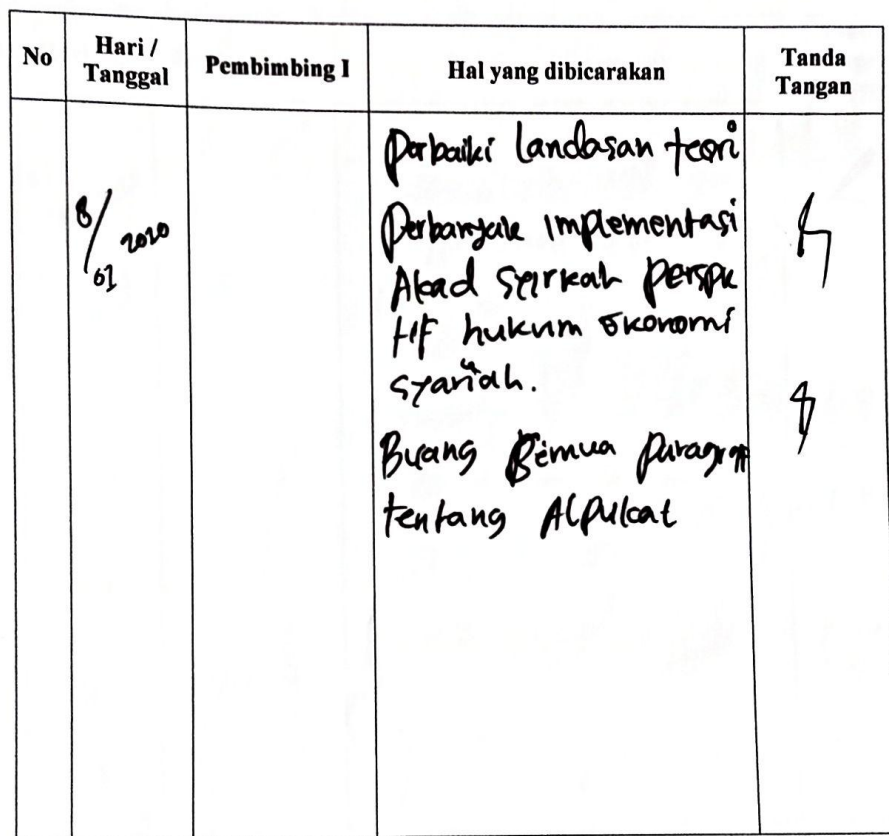 No
Hari /
Tanggal
Pembimbing I
Hal yang dibicarakan
Tanda
Tangan
8/01 2020
Perbaiki landasan teori
Perbanyak implementasi
Akad syirkah perspek
tif hukum Ekonomi
syariah.
Buang semua paragraf
tentang Alpukat